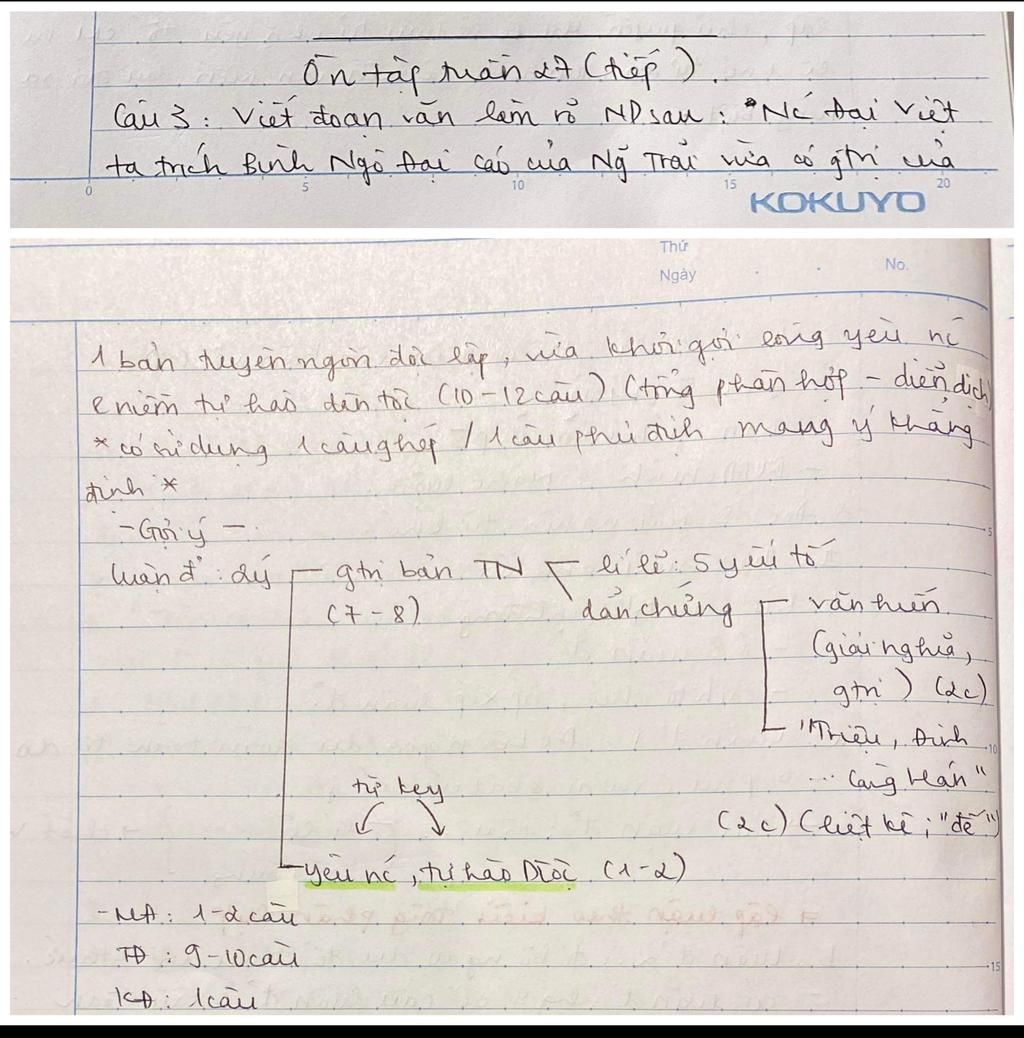 Ôn tập tuần 27 (tiếp).
Câu 3: Viết đoạn văn làm rõ ND sau: "Nc Đại Việt
ta trích Bình Ngô Đại Cáo của Ng Trãi vừa có gtrị của
0 5 10 15 20
KOKUYO
Thứ
Ngày No.
1 bản tuyên ngôn độc lập, vừa khơi gợi lòng yêu nc
niềm tự hào dân tộc (10-12 câu) (tổng phân hợp - diễn dịch)
*có sử dụng 1 câu ghép / 1 câu phủ định mang ý khẳng
định *
- Gợi ý -
5
luận đ': 2ý gtrị bản TN lí lẽ: 5 yếu tố
(7-8) dẫn chứng văn hiến
(giải nghĩa,
gtrị) (2c)
"Triệu, Đinh
10
... cùng Hán"
từ key
(2c) (liệt kê; "đế")
yêu nc, tự hào Dtộc (1-2)
- MĐ: 1-2 câu
TĐ: 9-10 câu
15
KĐ: 1 câu